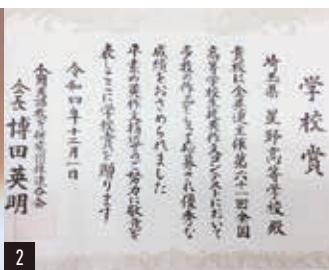 学校賞
埼玉県 星野高等学校殿
貴校は全農連主催第六十一回全国
高等学校生徒英作文コンテストにおいて
多数の作品をもって応募され優秀な
成績をおさめられました
平素の英作文指導のご努力に敬意を
表しここに学校賞を贈ります
令和四年十二月一日
会長 博田英明
2